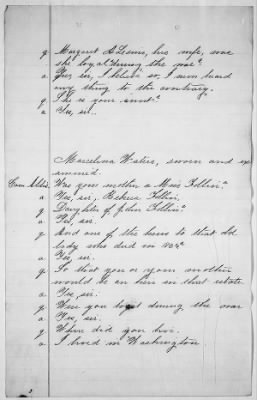 q Margaret A Lewis, his wife, was
she loyal during the war?
a Yes sir, I believe so, I never heard
any thing to the contrary.
q She is your aunt?
a Yes, sir.
Marcelina Waters, sworn and ex
amined.
Com Allis. Was your mother a Miss Follin?
a Yes, sir, Follin.
q Daughter of John Follin?
a Yes, sir.
q And one of the heirs to that old
lady who died in
a Yes, sir.
q So that you or your mother
would be an heir in that estate
a Yes, sir.
q Were you loyal during the war
a Yes, sir.
q Where did you live.
a I lived in Washington